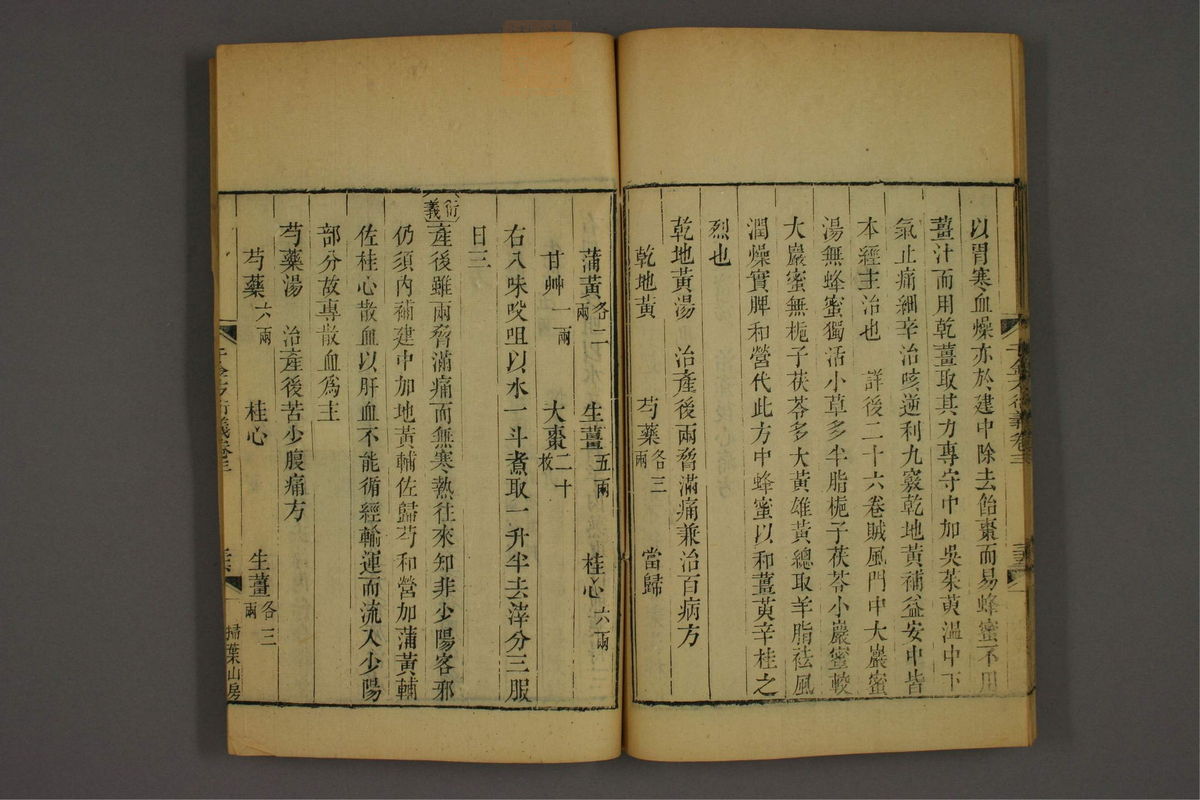 以胃寒血燥亦於建中除去飴棗而易蜂蜜不用
薑汁而用乾薑取其力專守中加吳茱萸溫中下
氣止痛細辛治咳逆利九竅乾地黃補益安中皆
本經主治也　詳後二十六卷賊風門中大巖蜜
湯無蜂蜜獨活小草多羊脂梔子茯苓小巖蜜較
大巖蜜無梔子茯苓多大黃雄黃總取羊脂祛風
潤燥實脾和營代此方中蜂蜜以和薑萸辛桂之
烈也
乾地黃湯　治產後兩脅滿痛兼治百病方
乾地黃　芍藥各三兩　當歸
蒲黃各二兩　生薑五兩　桂心六兩
甘艸一兩　大棗二十枚
右八味㕮咀以水一斗煮取一升半去滓分三服
日三
衍義　產後雖兩脅滿痛而無寒熱往來知非少陽客邪
仍須內補建中加地黃輔佐歸芍和營加蒲黃輔
佐桂心散血以肝血不能循經輸運而流入少陽
部分故專散血為主
芍藥湯　治產後苦少腹痛方
芍藥六兩　桂心　生薑各三兩
千金方衍義卷三
掃葉山房